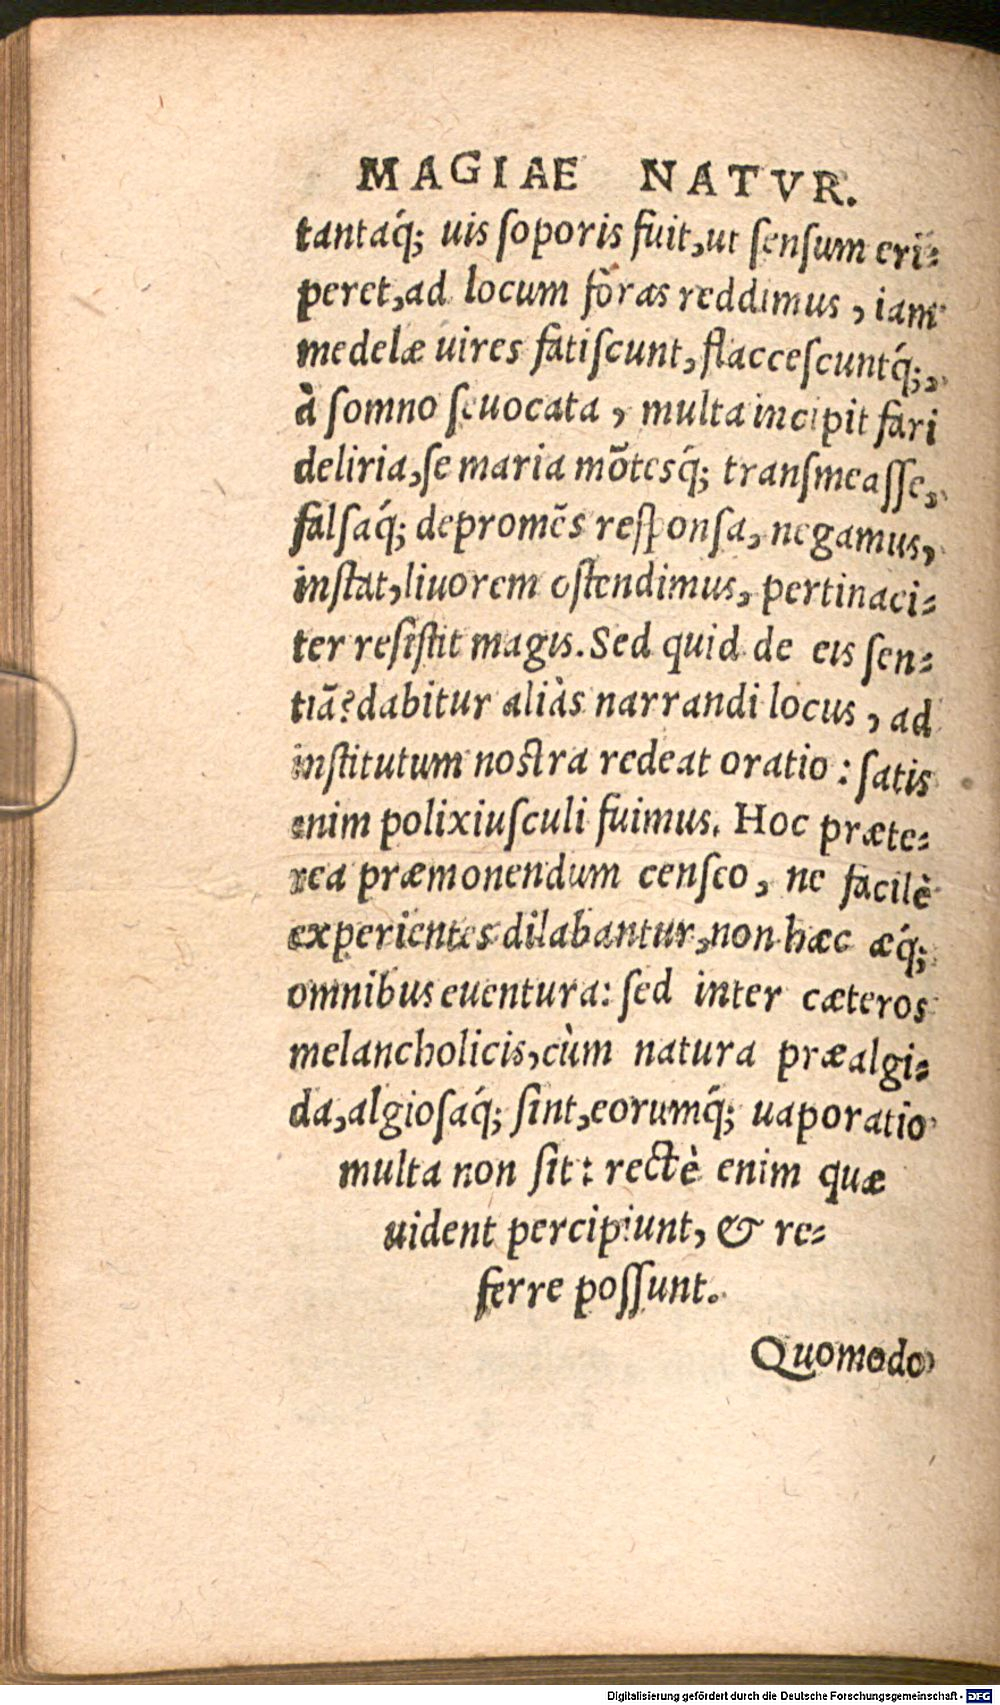 MAGIAE NATVR.
tantaq́; uis ſoporis fuit, ut ſenſum eri-
peret, ad locum fòras reddimus, iam
medelæ uires fatiſcunt, flacceſcuntq́;,
à ſomno ſeuocata, multa incipit fari
deliria, ſe maria mõtesq́; tranſmeaſſe,
falſaq́; depromẽs reſponſa, negamus,
inſtat, liuorem oſtendimus, pertinaci-
ter reſiſtit magis. Sed quid de eis ſen-
tiã? dabitur aliàs narrandi locus, ad
inſtitutum noſtra redeat oratio: ſatis
enim polixiuſculi fuimus. Hoc præte-
rea præmonendum cenſeo, ne facilè
experientes dilabantur, non hæc æq́;
omnibus euentura: ſed inter cæteros
melancholicis, cùm natura præalgi-
da, algioſaq́; ſint, eorumq́; uaporatio
multa non ſit: rectè enim quæ
uident percipiunt, & re-
ferre poſſunt.
Quomodo
Digitalisierung gefördert durch die Deutsche Forschungsgemeinschaft - DFG